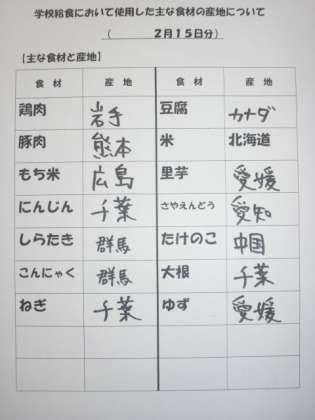 学校給食において使用した主な食材の産地について
(2月15日分)
【主な食材と産地】
食材 産地 食材 産地
鶏肉 岩手 豆腐 カナダ
豚肉 熊本 米 北海道
もち米 広島 里芋 愛媛
にんじん 千葉 さやえんどう 愛知
しらたき 群馬 たけのこ 中国
こんにゃく 群馬 大根 千葉
ねぎ 千葉 ゆず 愛媛